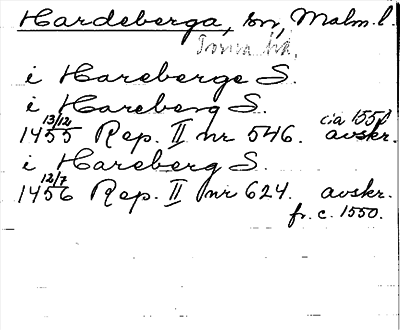 Hardeberga, sn, Malm. l.
Torna hd.
i Hareberge S.
i Hareberg S.
13/12 cia 1550
1455 Rep. II nr 546. avskr.
i Hareberg S.
12/7
1456 Rep. II nr 624. avskr.
fr. c. 1550.